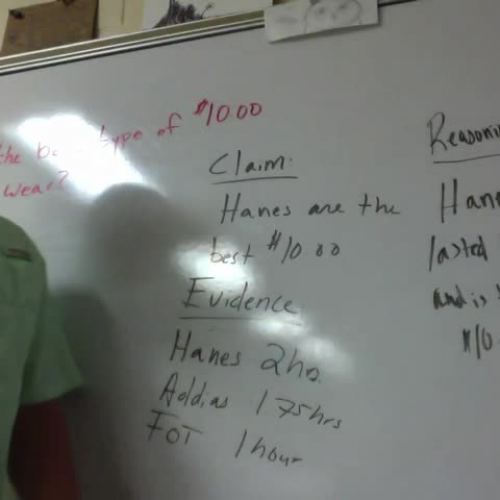 the type of $10.00
wear?
Claim:
Hanes are the
best $10.00
Evidence
Hanes 2hrs
Addias 1.75hrs
FOT 1 hour
Reasoning
Hanes
lasted
and is